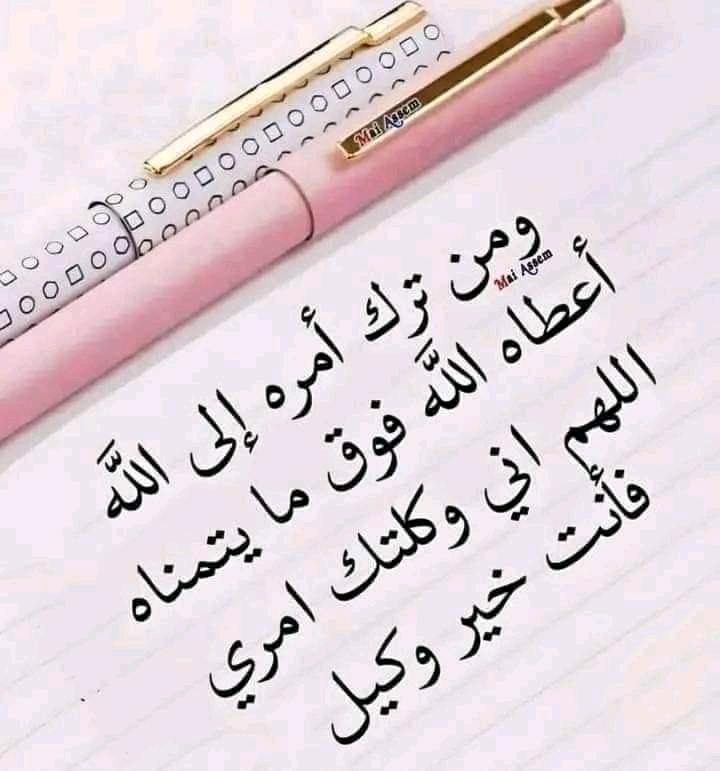 Mai Assem
ومن ترك أمره إلى الله
Mai Assem
أعطاه الله فوق ما يتمناه
اللهم اني وكلتك امري
فأنت خير وكيل